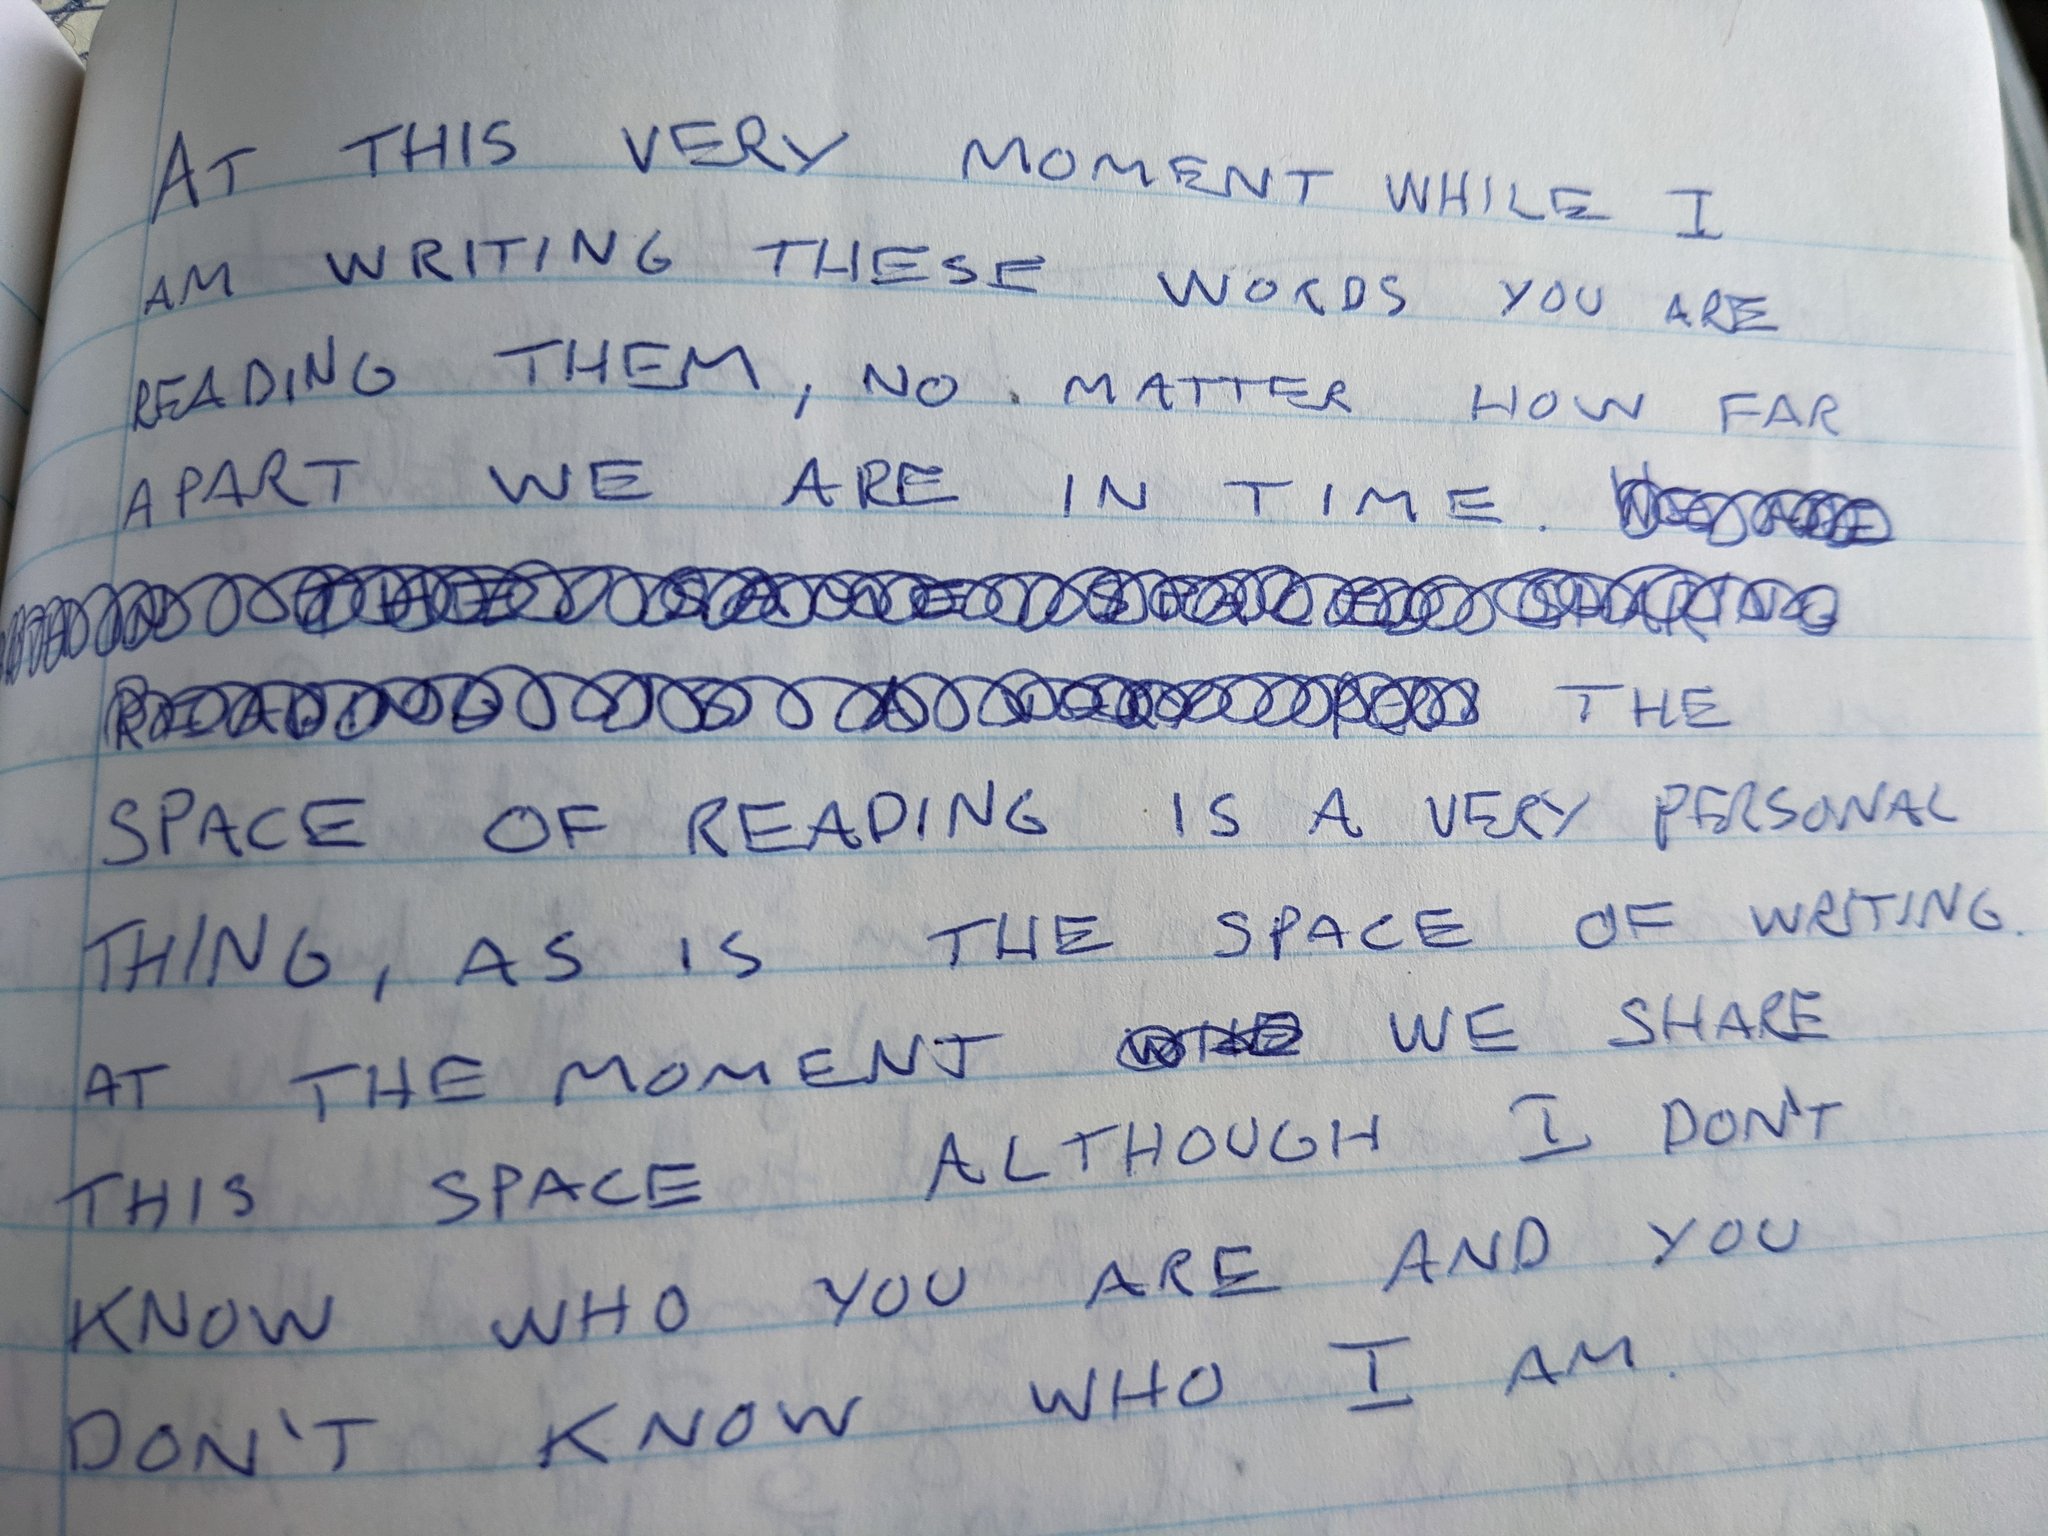 AT THIS VERY MOMENT WHILE I
AM WRITING THESE WORDS YOU ARE
READING THEM, NO MATTER HOW FAR
APART WE ARE IN TIME. WE ARE
IN THE SAME SPACE SHARING
READING IS A VERY PER THE
SPACE OF READING IS A VERY PERSONAL
THING, AS IS THE SPACE OF WRITING.
AT THE MOMENT WE SHARE
THIS SPACE ALTHOUGH I DON'T
KNOW WHO YOU ARE AND YOU
DON'T KNOW WHO I AM.